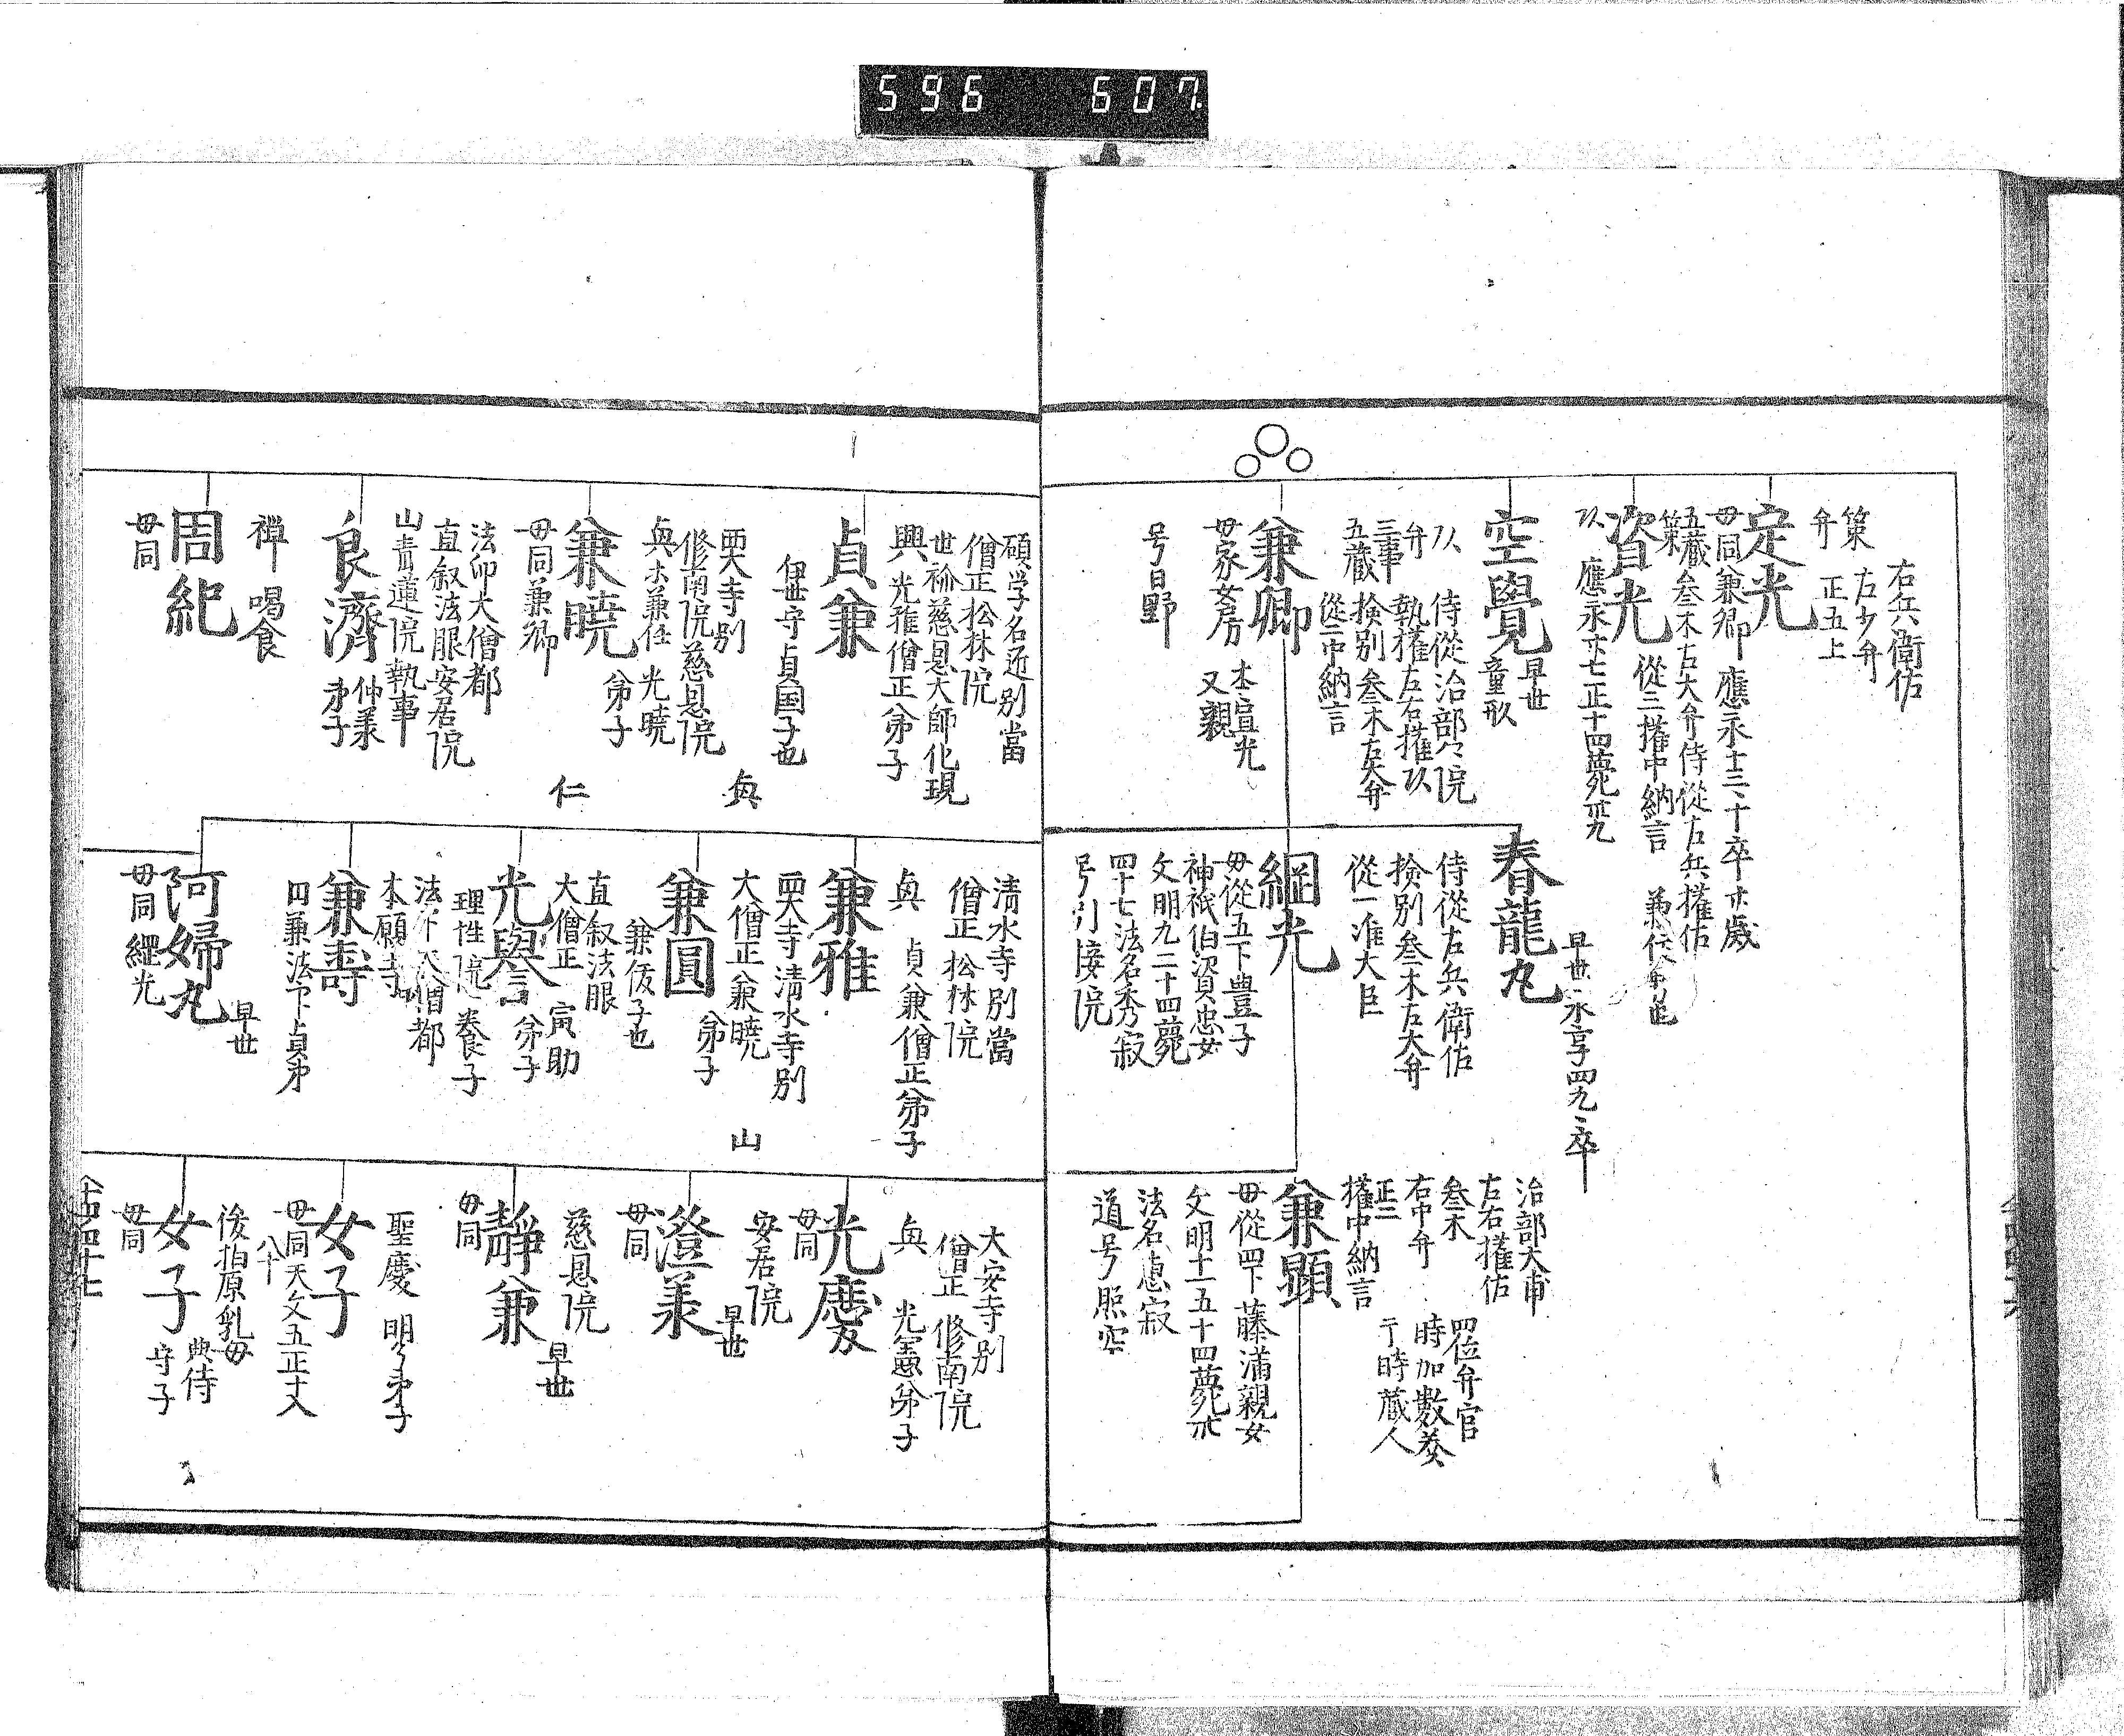 596 607
右兵衛佐
左少弁
正五上
策
弁
定光
毋同兼卿 應永十三、十卒廿歳
五蔵 叄木 右大弁 侍從 右兵 權佐
策
資光
從三 權中納言
應永廿七正十四薨廿九
空覺
早世
童形
侍從 治部 院
弁 執權 左右權
三事 撿别 叄木 左大弁
五蔵 從二 中納言
兼卿
本宣光
又親
毋家女房
号日野
春龍丸
早世 永享四九、卒
侍從 左兵衛佐
撿别 叄木 右大弁
從一 准大臣
綱光
毋從五下豊子
神祇伯資忠女
文明九二十四薨
四十七 法名秀寂
号引接院
治部大甫
左右權佐
叄木
右中弁
正三
權中納言
四位弁官
時加數羙
于時蔵人
兼顕
毋從四下藤滿親女
文明十一五十四薨
法名恵寂
道号照空
碩学名近别當
僧正 松林院
世称慈恩大師化現
興 光雅僧正弟子
貞兼
伊世守貞国子也
西大寺别
修南院 慈恩院
兼任 光暁
兼暁
弟子
毋同兼卿
法印大僧都
直叙法眼 安居院
山青蓮院執事
仁
良濟
仲羙
弟子
禅 喝食
周紀
毋同
清水寺别當
僧正 松林院
貞兼僧正弟子
兼雅
西大寺清水寺别
大僧正 兼暁
兼圓
弟子
兼俊子也
直叙法眼
大僧正 寅助
光譽
弟子
理性院 養子
大僧都
本願寺
兼壽
円兼法下貞弟
阿婦丸
早世
毋同綱光
大安寺别
僧正 修南院
光憲弟子
光慶
毋同
安居院
山
澄羙
早世
毋同
慈恩院
静兼
早世
毋同
聖慶 明弟子
女子
毋同 天文五正十八
八十
後栢原乳毋
典侍
女子
守子
毋同